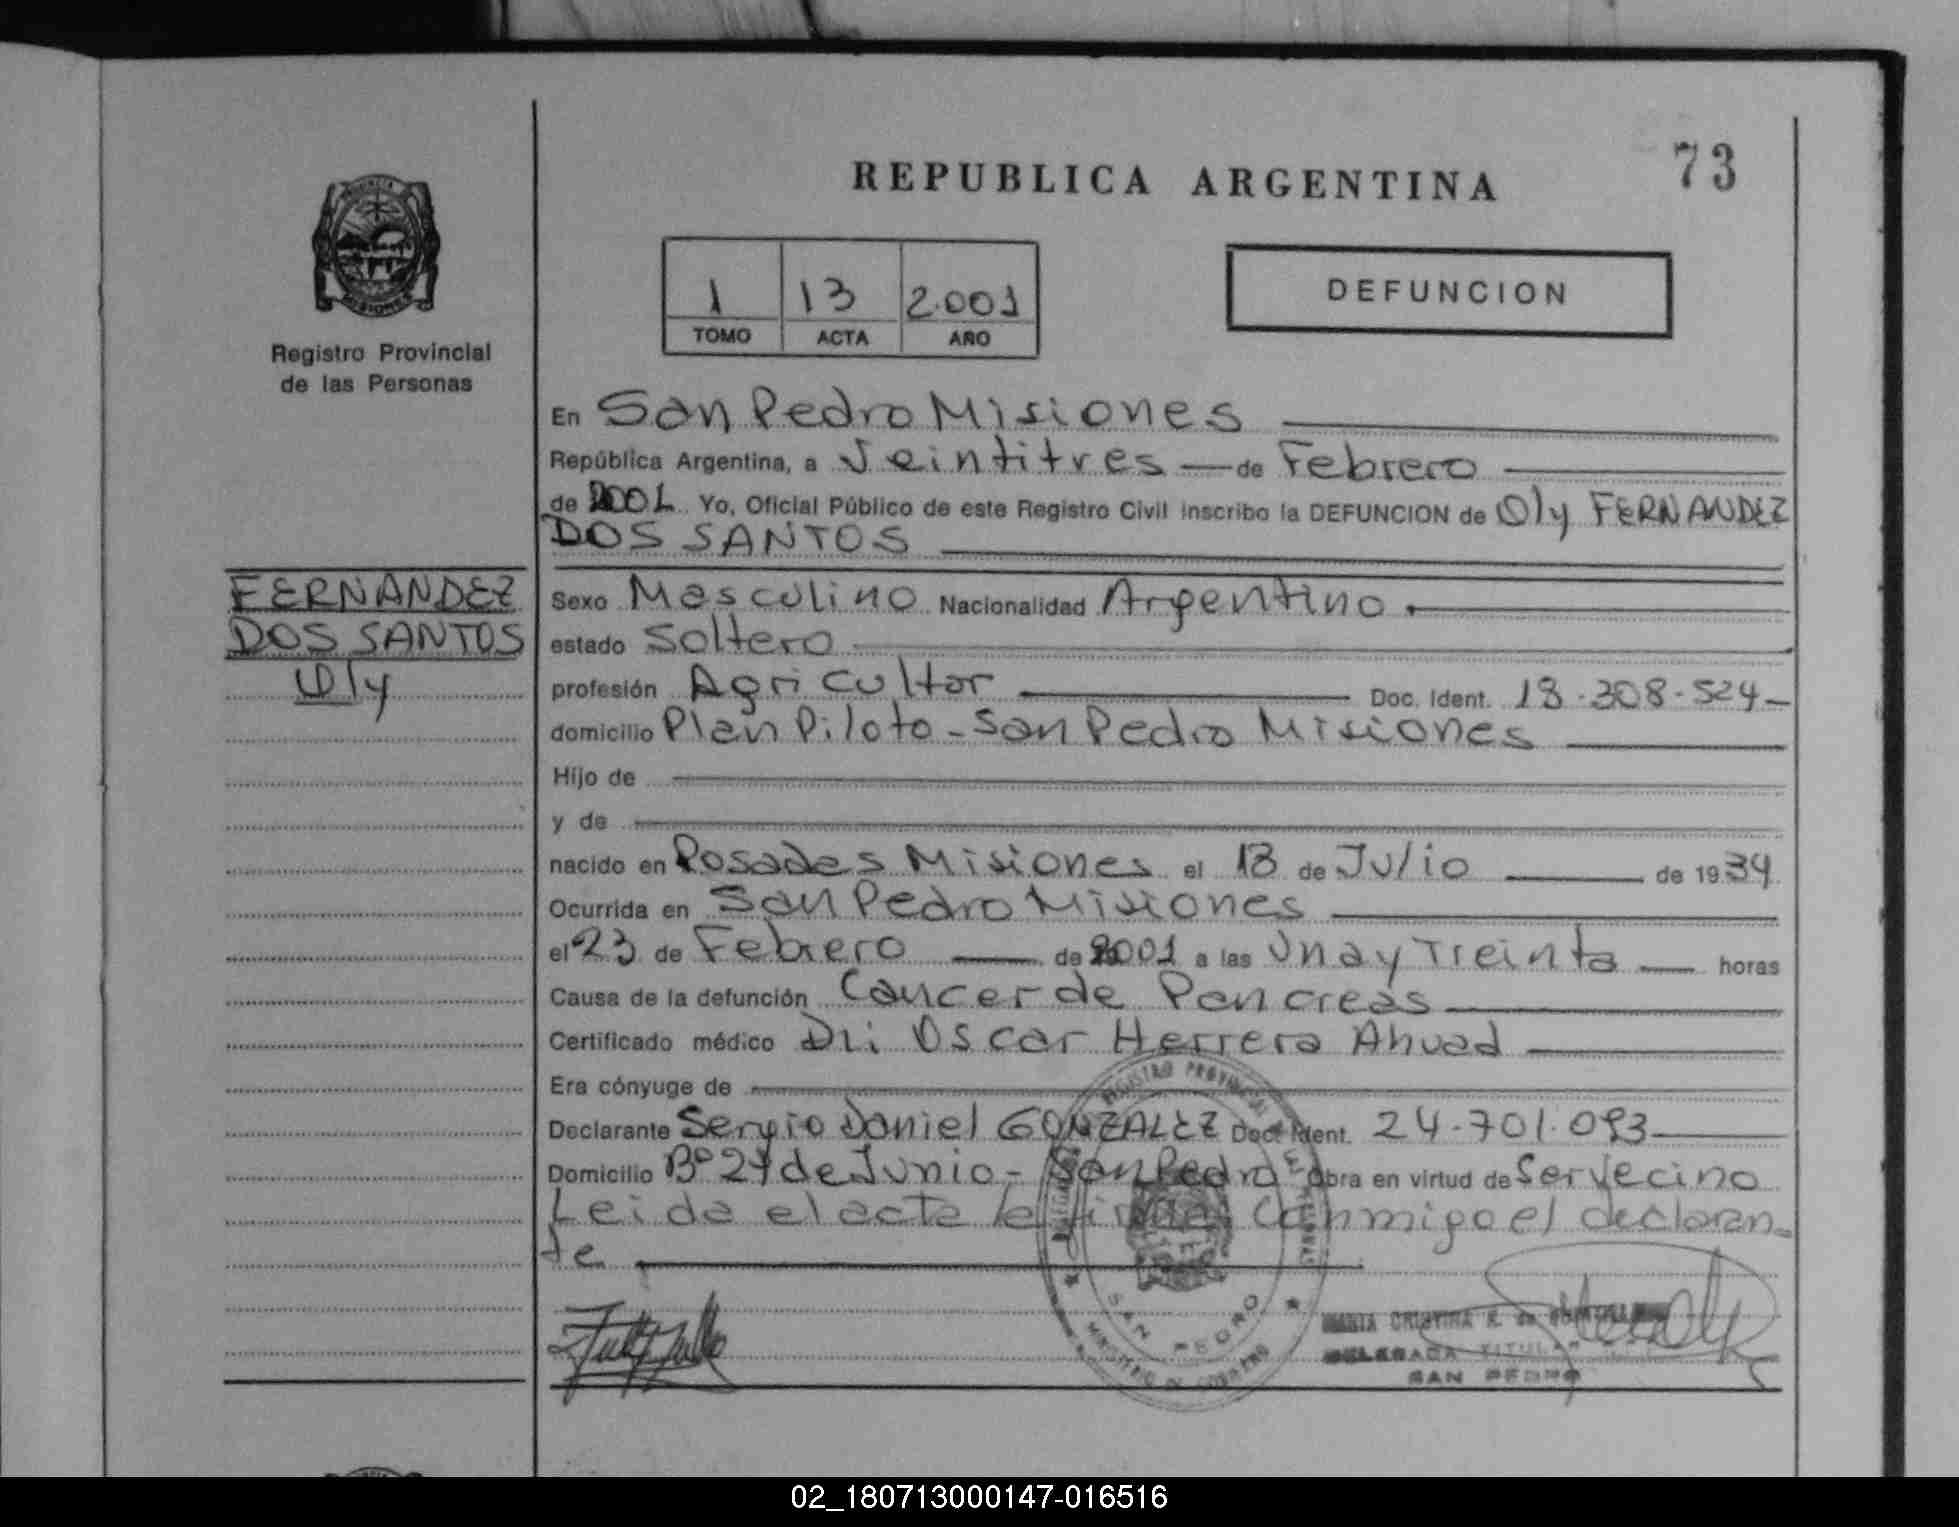 73
REPUBLICA ARGENTINA
1 13 2.001
TOMO ACTA AÑO
DEFUNCION
Registro Provincial
de las Personas
En San Pedro Misiones
República Argentina, a Veintitres de Febrero
de 2001 Yo, Oficial Público de este Registro Civil inscribo la DEFUNCION de Oly FERNANDEZ
DOS SANTOS
FERNANDEZ
DOS SANTOS
Oly
Sexo Masculino Nacionalidad Argentino
estado Soltero
profesión Agricultor Doc. Ident. 18.308.524
domicilio Plan Piloto - San Pedro Misiones
Hijo de
y de
nacido en Posadas Misiones el 13 de Julio de 1934
Ocurrida en San Pedro Misiones
el 23 de Febrero de 2001 a las Una y Treinta horas
Causa de la defunción Cancer de Pancreas
Certificado médico Dr: Oscar Herrera Ahuad
Era cónyuge de
Declarante Sergio Daniel GONZALEZ Doc. Ident. 24.701.093
Domicilio Bº 24 de Junio - San Pedro Obra en virtud de Ser Vecino
Leida el acta la firma Conmigo el declaran-
te
REGISTRO PROVINCIAL DE LAS PERSONAS
SAN PEDRO
MINISTERIO DE GOBIERNO
MARIA CRISTINA R. de
DELEGADA TITULAR
SAN PEDRO
02_180713000147-016516